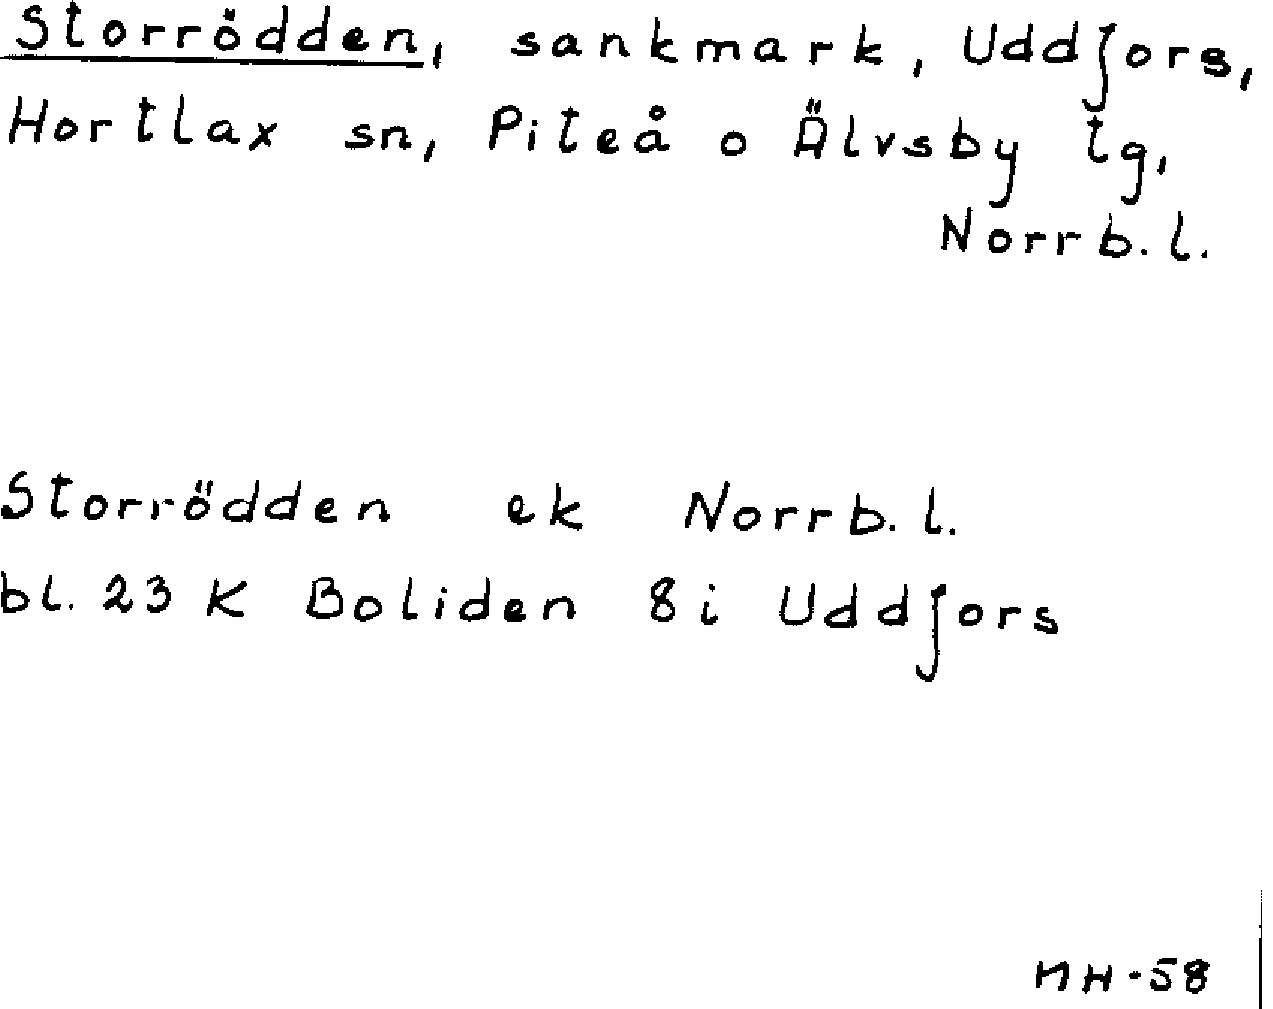 Storrödden, sankmark, Uddfors,
Hortlax sn, Piteå o Älvsby tg,
Norrb. l.
Storrödden ek Norrb. l.
bl. 23 K Boliden 8i Uddfors
MH-58